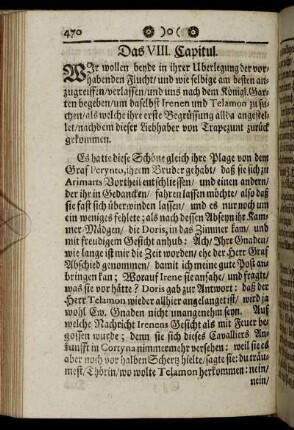 470
Das VIII. Capitul.
WIr wollen beyde in ihrer Uberlegung der vor-
habenden Flucht/ und wie selbige am besten an-
zugreiffen/ verlassen/ und uns nach dem Königl. Gar-
ten begeben/ um daselbst Irenen und Telamon zu su-
chen/ als welche ihre erste Begrüssung allda angestel-
let/ nachdem dieser Liebhaber von Trapezunt zurück
gekommen.
Es hatte diese Schöne gleich ihre Plage von dem
Graf Perynto, ihrem Bruder gehabt/ daß sie sich zu
Arimarts Vortheil entschliessen/ und einen andern/
der ihr in Gedancken/ fahren lassen möchte/ also daß
sie fast sich überwinden lassen/ und es nur noch um
ein weniges fehlete: als nach dessen Abseyn ihr Kam-
mer-Mädgen/ die Doris, in das Zimmer kam/ und
mit freudigem Gesicht anhub: Ach/ Ihr Gnaden/
wie lange ist mir die Zeit worden/ ehe der Herr Graf
Abschied genommen/ damit ich meine gute Post an-
bringen kan; Worauf Irene sie ansahe/ und fragte/
was sie vor hätte? Doris gab zur Antwort: daß der
Herr Telamon wieder allhier angelanget ist/ wird ja
wohl Ew. Gnaden nicht unangenehm seyn. Auf
welche Nachricht Irenens Gesicht als mit Feuer be-
gossen wurde; denn sie sich dieses Cavalliers An-
kunfft in Cortyna nimmermehr versehen: weil sie es
aber noch vor halben Schertz hielte/ sagte sie: du träu-
mest/ Thörin/ wo wolte Telamon herkommen: nein/
nein/